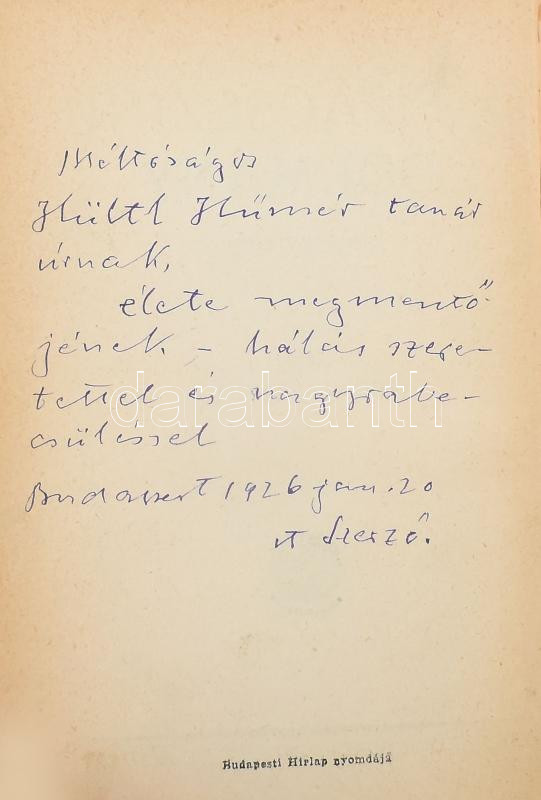 Méltóságos
Hültl Hümér tanár
úrnak,
élete megmentő-
jének – hálás szere-
tettel és nagyrabe-
csüléssel
darabanth
Budapest 1926 jan. 20
a Szerző.
Budapesti Hirlap nyomdája